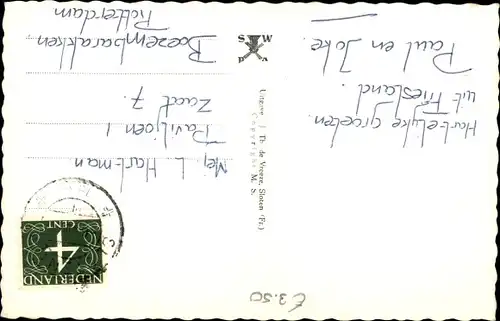 Hartelijke groeten.
uit Friesland.
Paul en Joke.
Mej. L. Hartman
Paviljoen 1
Zaal 7.
Boezembarakken
Rotterdam
S W
P V
Uitgave J. Th. de Vreeze, Sloten (Fr.)
Copyright M. S.
NEDERLAND
4
CENT
€ 3.50